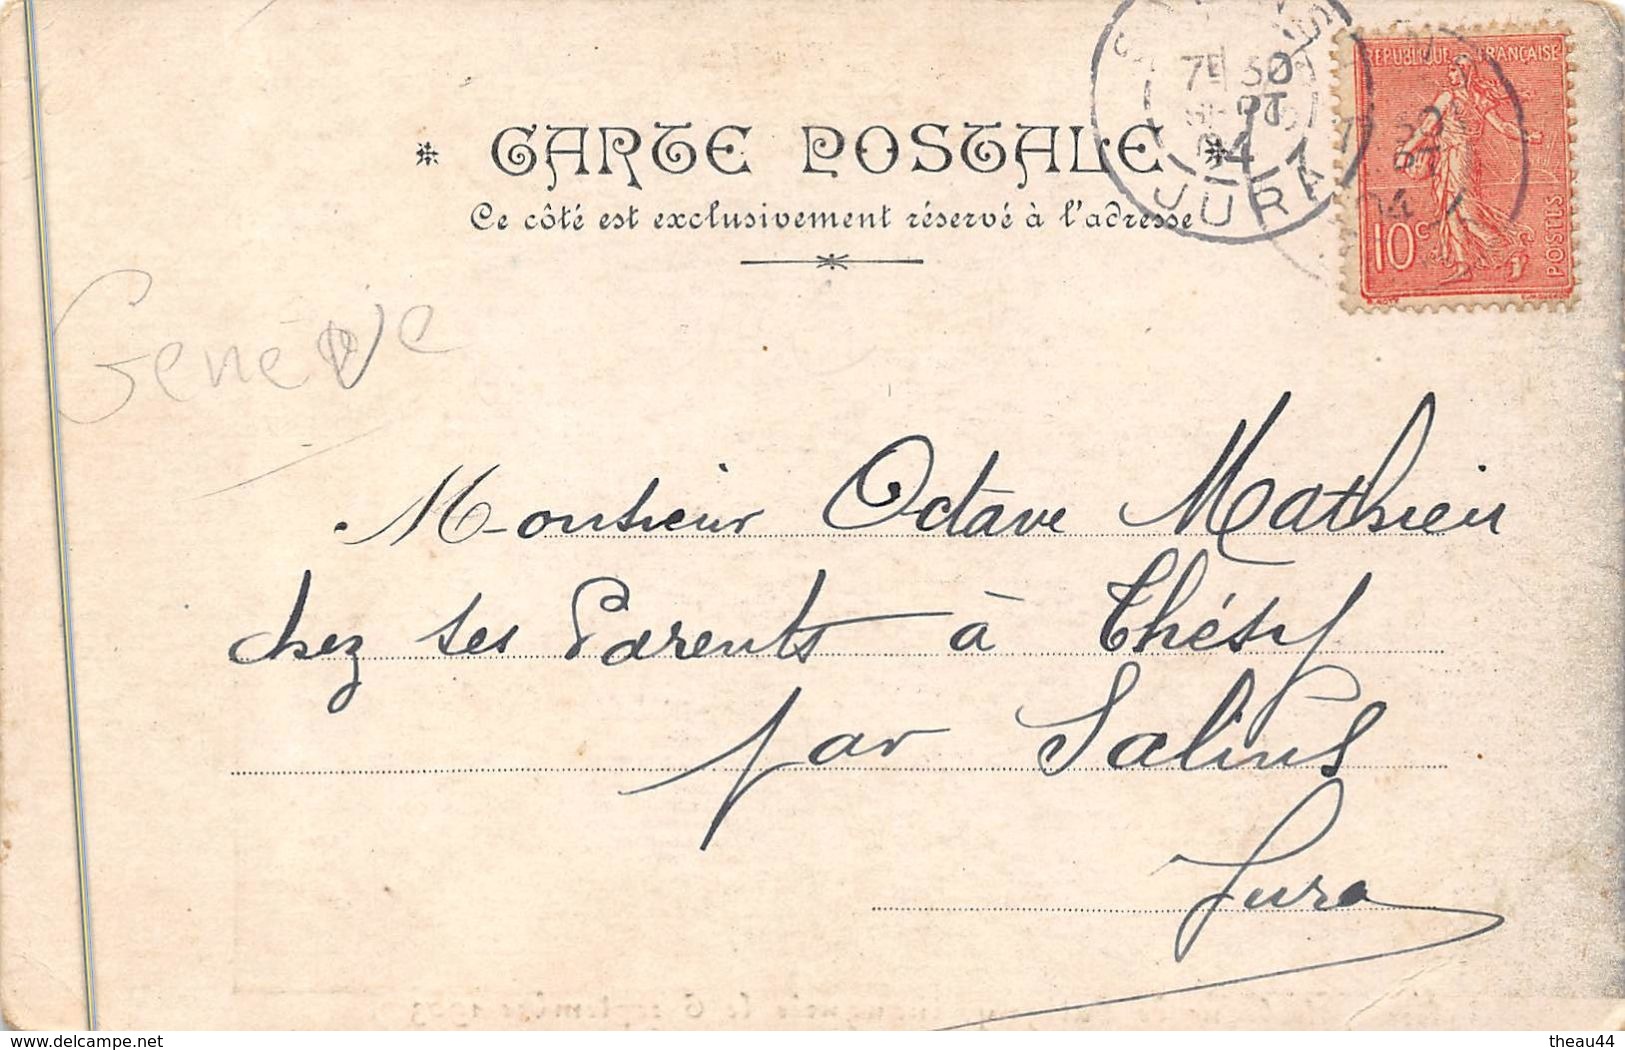 CARTE POSTALE
Ce côté est exclusivement réservé à l'adresse
REPUBLIQUE FRANÇAISE
10c
POSTES
7E 30
04
JURA
Genève
Monsieur Octave Mathieu
chez ses Parents à Thésy
par Salins
Jura
delcampe.net
theau44